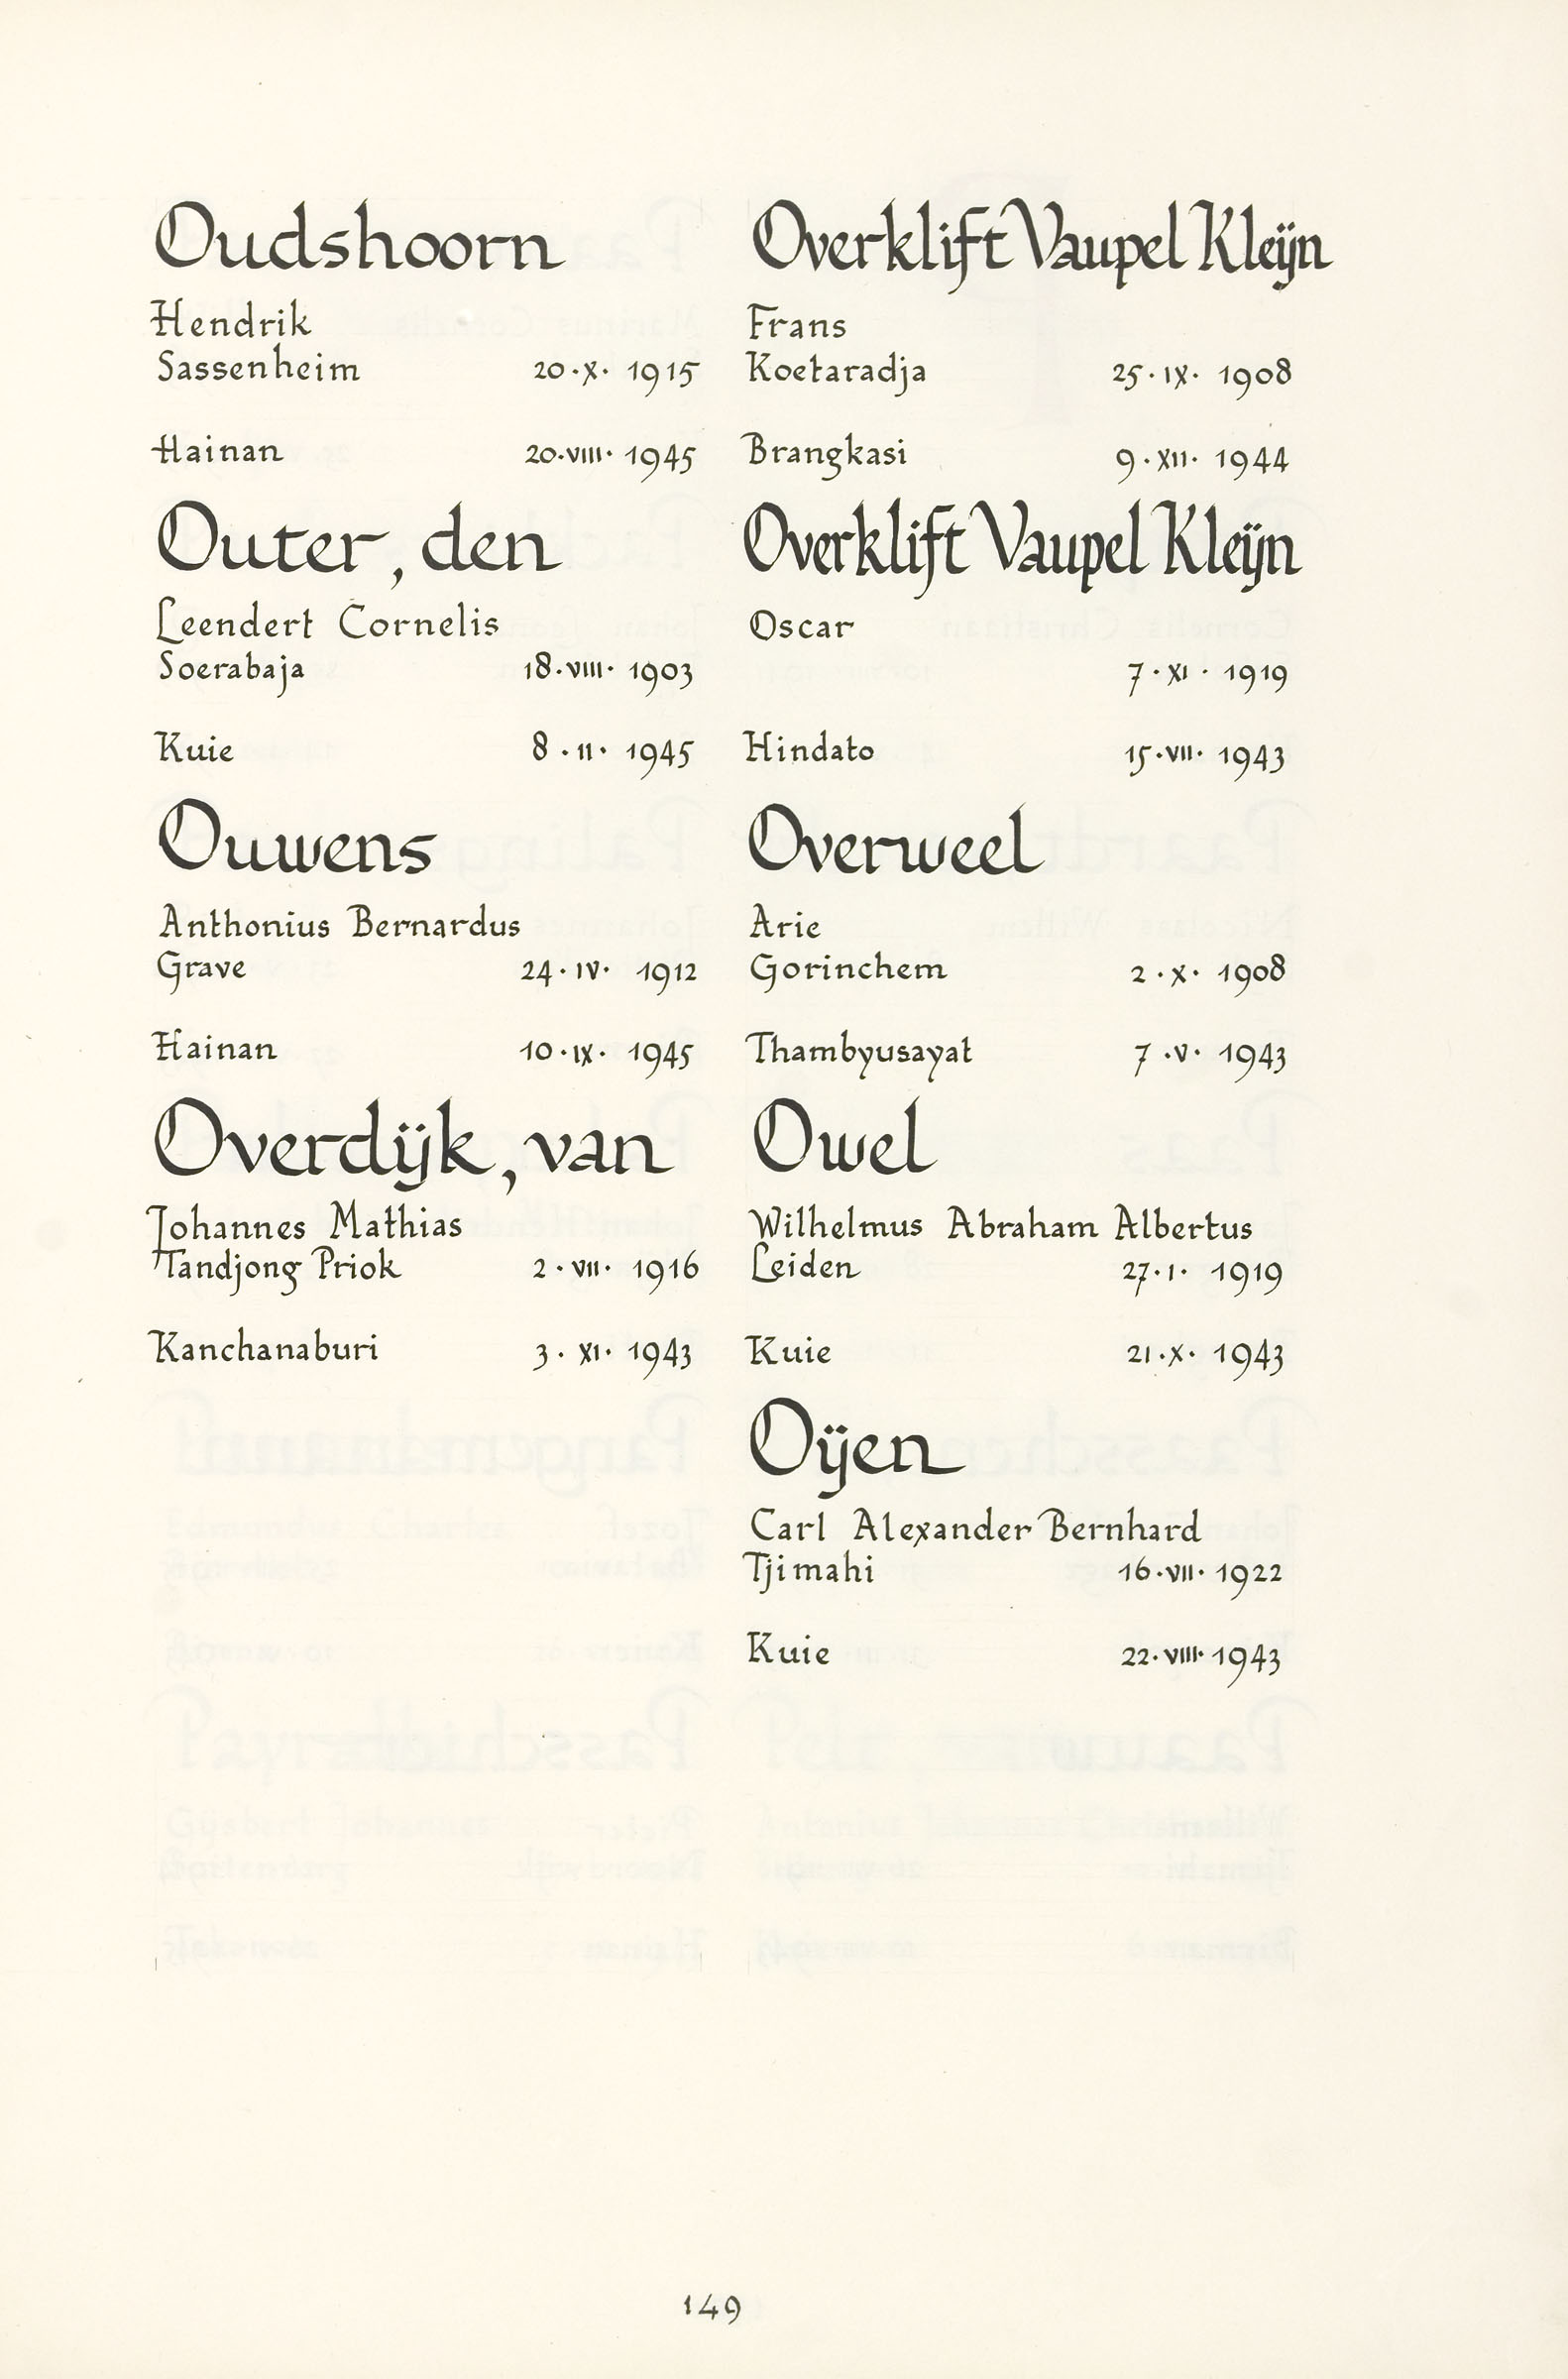 Oudshoorn
Hendrik
Sassenheim 20·X· 1915
Hainan 20·VIII· 1945
Outer, den
Leendert Cornelis
Soerabaja 18·VIII· 1903
Kuie 8·II· 1945
Ouwens
Anthonius Bernardus
Grave 24·IV· 1912
Hainan 10·IX· 1945
Overdijk, van
Johannes Mathias
Tandjong Priok 2·VII· 1916
Kanchanaburi 3·XI· 1943
Overklift Vaupel Kleijn
Frans
Koetaradja 25·IX· 1908
Brangkasi 9·XII· 1944
Overklift Vaupel Kleijn
Oscar
7·XI· 1919
Hindato 15·VII· 1943
Overweel
Arie
Gorinchem 2·X· 1908
Thambyusayat 7·V· 1943
Owel
Wilhelmus Abraham Albertus
Leiden 27·I· 1919
Kuie 21·X· 1943
Oijen
Carl Alexander Bernhard
Tjimahi 16·VII· 1922
Kuie 22·VIII· 1943
149